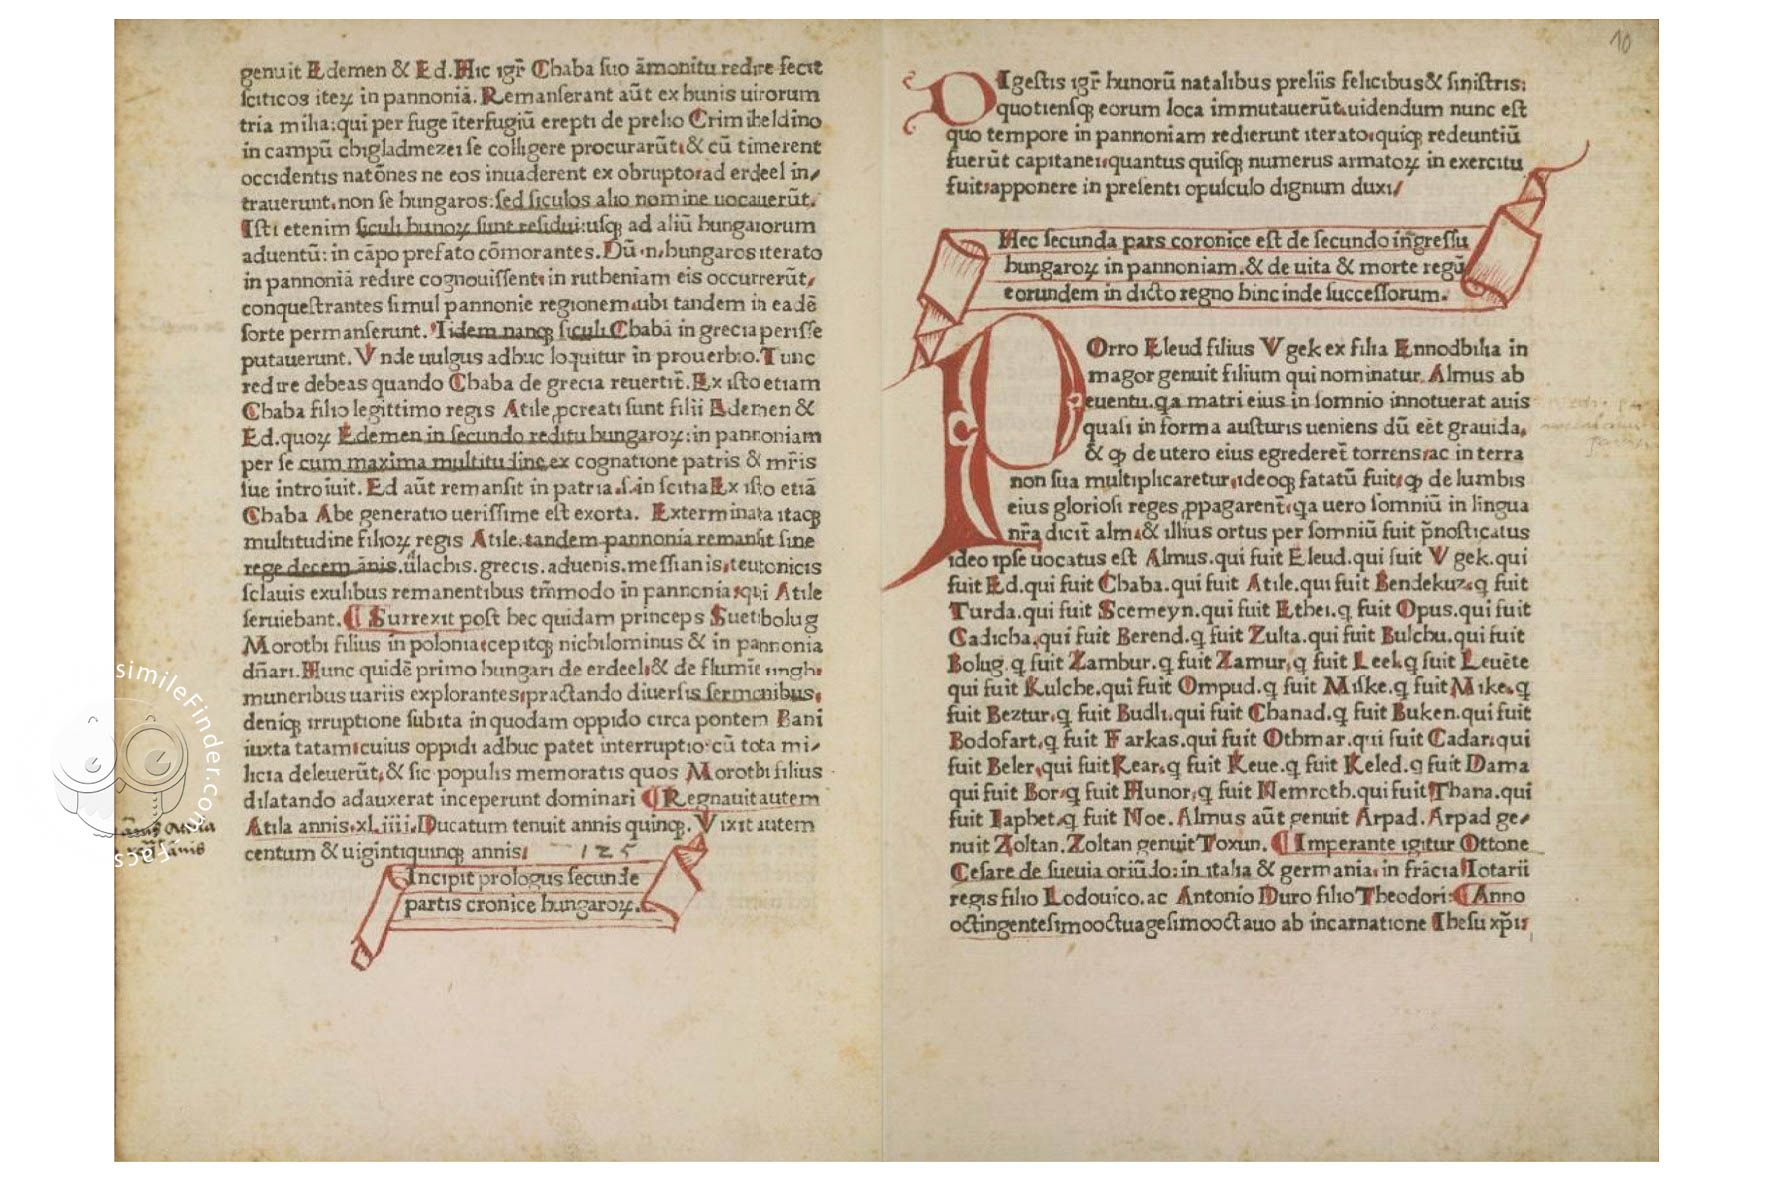 genuit Edemen & Ed. Hic igr̃ Chaba suo ãmonitu redire fecit
sciticos iteꝝ in pannoniã. Remanserant aũt ex hunis uirorum
tria milia: qui per fuge ĩterfugiũ erepti de prelio Crimiheldino
in campũ chigladmezei se colligere procurarũt. & cũ timerent
occidentis natõnes ne eos inuaderent ex obrupto. ad erdeel in/
trauerunt. non se hungaros: sed siculos alio nomine uocauerũt.
Isti etenim siculi hunoꝝ sunt residui: usqꝫ ad aliũ hungarorum
aduentũ: in cãpo prefato cõmorantes. Dũ .n. hungaros iterato
in pannoniã redire cognouissent. in rutheniam eis occurrerũt,
conquestrantes simul pannonie regionem. ubi tandem in eadẽ
sorte permanserunt. Iidem nanqꝫ siculi Chabã in grecia perisse
putauerunt. Vnde uulgus adhuc loquitur in prouerbio. Tunc
redire debeas quando Chaba de grecia reuertit̃. Ex isto etiam
Chaba filio legittimo regis Atile ꝓcreati sunt filii Edemen &
Ed. quoꝝ Edemen in secundo reditu hungaroꝝ: in pannoniam
per se cum maxima multitudine ex cognatione patris & mr̃is
sue introiuit. Ed aũt remansit in patria .s. in scitia Ex isto etiã
Chaba Abe generatio uerissime est exorta. Exterminata itaqꝫ
multitudine filioꝝ regis Atile. tandem pannonia remansit sine
rege decem ãnis. ulachis. grecis. aduenis. messianis. teutonicis
sclauis exulibus remanentibus tm̃modo in pannonia. qui Atile
seruiebant. ¶ Surrexit post hec quidam princeps Suetibolug
Morothi filius in polonia. cepitqꝫ nichilominus & in pannonia
dñari. Hunc quidẽ primo hungari de erdeel. & de flumĩe
muneribus uariis explorantes. practando diuersis sermonibus.
deniqꝫ irruptione subita in quodam oppido circa pontem Bani
iuxta tatam. cuius oppidi adhuc patet interruptio. cũ tota mi/
licia deleuerũt. & sic populis memoratis quos Morothi filius
dilatando adauxerat inceperunt dominari ¶ Regnauit autem
Atila annis .xLiiii. Ducatum tenuit annis quinqꝫ. Vixit autem
centum & uigintiquinqꝫ annis. 125
Incipit prologus secunde
partis cronice hungaroꝝ.
10
DIgestis igr̃ hunorũ natalibus preliis felicibus & sinistris:
quotiensqꝫ eorum loca immutauerũt. uidendum nunc est
quo tempore in pannoniam redierunt iterato. quiqꝫ redeuntiũ
fuerũt capitanei. quantus quisqꝫ numerus armatoꝝ in exercitu
fuit. apponere in presenti opusculo dignum duxi/
Hec secunda pars coronice est de secundo ingressu
hungaroꝝ in pannoniam. & de uita & morte regũ
eorundem in dicto regno hinc inde successorum.
POrro Eleud filius Vgek ex filia Ennodbilia in
magor genuit filium qui nominatur. Almus ab
euentu. qa matri eius in somnio innotuerat auis
quasi in forma austuris ueniens dũ eẽt grauida,
& ꝙ de utero eius egrederet̃ torrens. ac in terra
non sua multiplicaretur. ideoqꝫ fatatũ fuit. ꝙ de lumbis
eius gloriosi reges ꝓpagarent̃. qa uero somniũ in lingua
nr̃a dicit̃ alm. & illius ortus per somniũ fuit p̃nosticatus
ideo ipse uocatus est Almus. qui fuit Eleud. qui fuit Vgek. qui
fuit Ed. qui fuit Chaba. qui fuit Atile. qui fuit Bendekuz. q̃ fuit
Turda. qui fuit Scemeyn. qui fuit Ethei. q̃ fuit Opus. qui fuit
Cadicha. qui fuit Berend. q̃ fuit Zulta. qui fuit Bulchu. qui fuit
Bolug. q̃ fuit Zambur. q̃ fuit Zamur. q̃ fuit Leel. q̃ fuit Leuẽte
qui fuit Kulche. qui fuit Ompud. q̃ fuit Miske. q̃ fuit Mike. q̃
fuit Beztur. q̃ fuit Budli. qui fuit Chanad. q̃ fuit Buken. qui fuit
Bodofart. q̃ fuit Farkas. qui fuit Othmar. qui fuit Cadar. qui
fuit Beler. qui fuit Kear. q̃ fuit Keue. q̃ fuit Keled. q̃ fuit Dama
qui fuit Bor. q̃ fuit Hunor. q̃ fuit Nemroth. qui fuit Thana. qui
fuit Iaphet. q̃ fuit Noe. Almus aũt genuit Arpad. Arpad ge/
nuit Zoltan. Zoltan genuit Toxun. ¶ Imperante igitur Ottone
Cesare de sueuia oriũdo: in italia & germania. in frãcia Lotarii
regis filio Lodouico. ac Antonio Duro filio Theodori: ¶ Anno
octingentesimooctuagesimooctauo ab incarnatione Ihesu xp̃i.